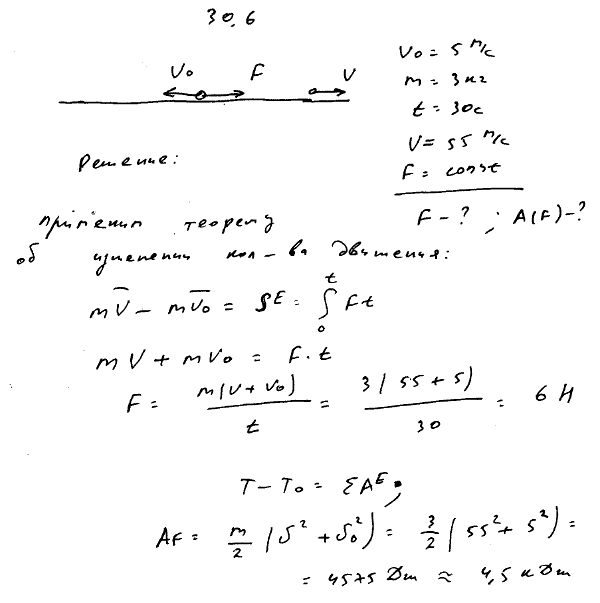 30.6
V₀ = 5 м/с
m = 3 кг
t = 30с
V = 55 м/с
F = const
F - ? ; A(F) - ?
V₀ F V
Решение:
Применим теорему
об изменении кол-ва движения:
mV̅ - mV̅₀ = S^E = ∫₀ᵗ Ft
mV + mV₀ = F·t
F = m(V + V₀) / t = 3(55 + 5) / 30 = 6 Н
T - T₀ = ΣA^E;
A_F = m/2 (V² + V₀²) = 3/2 (55² + 5²) =
= 4575 Дж ≈ 4,5 кДж